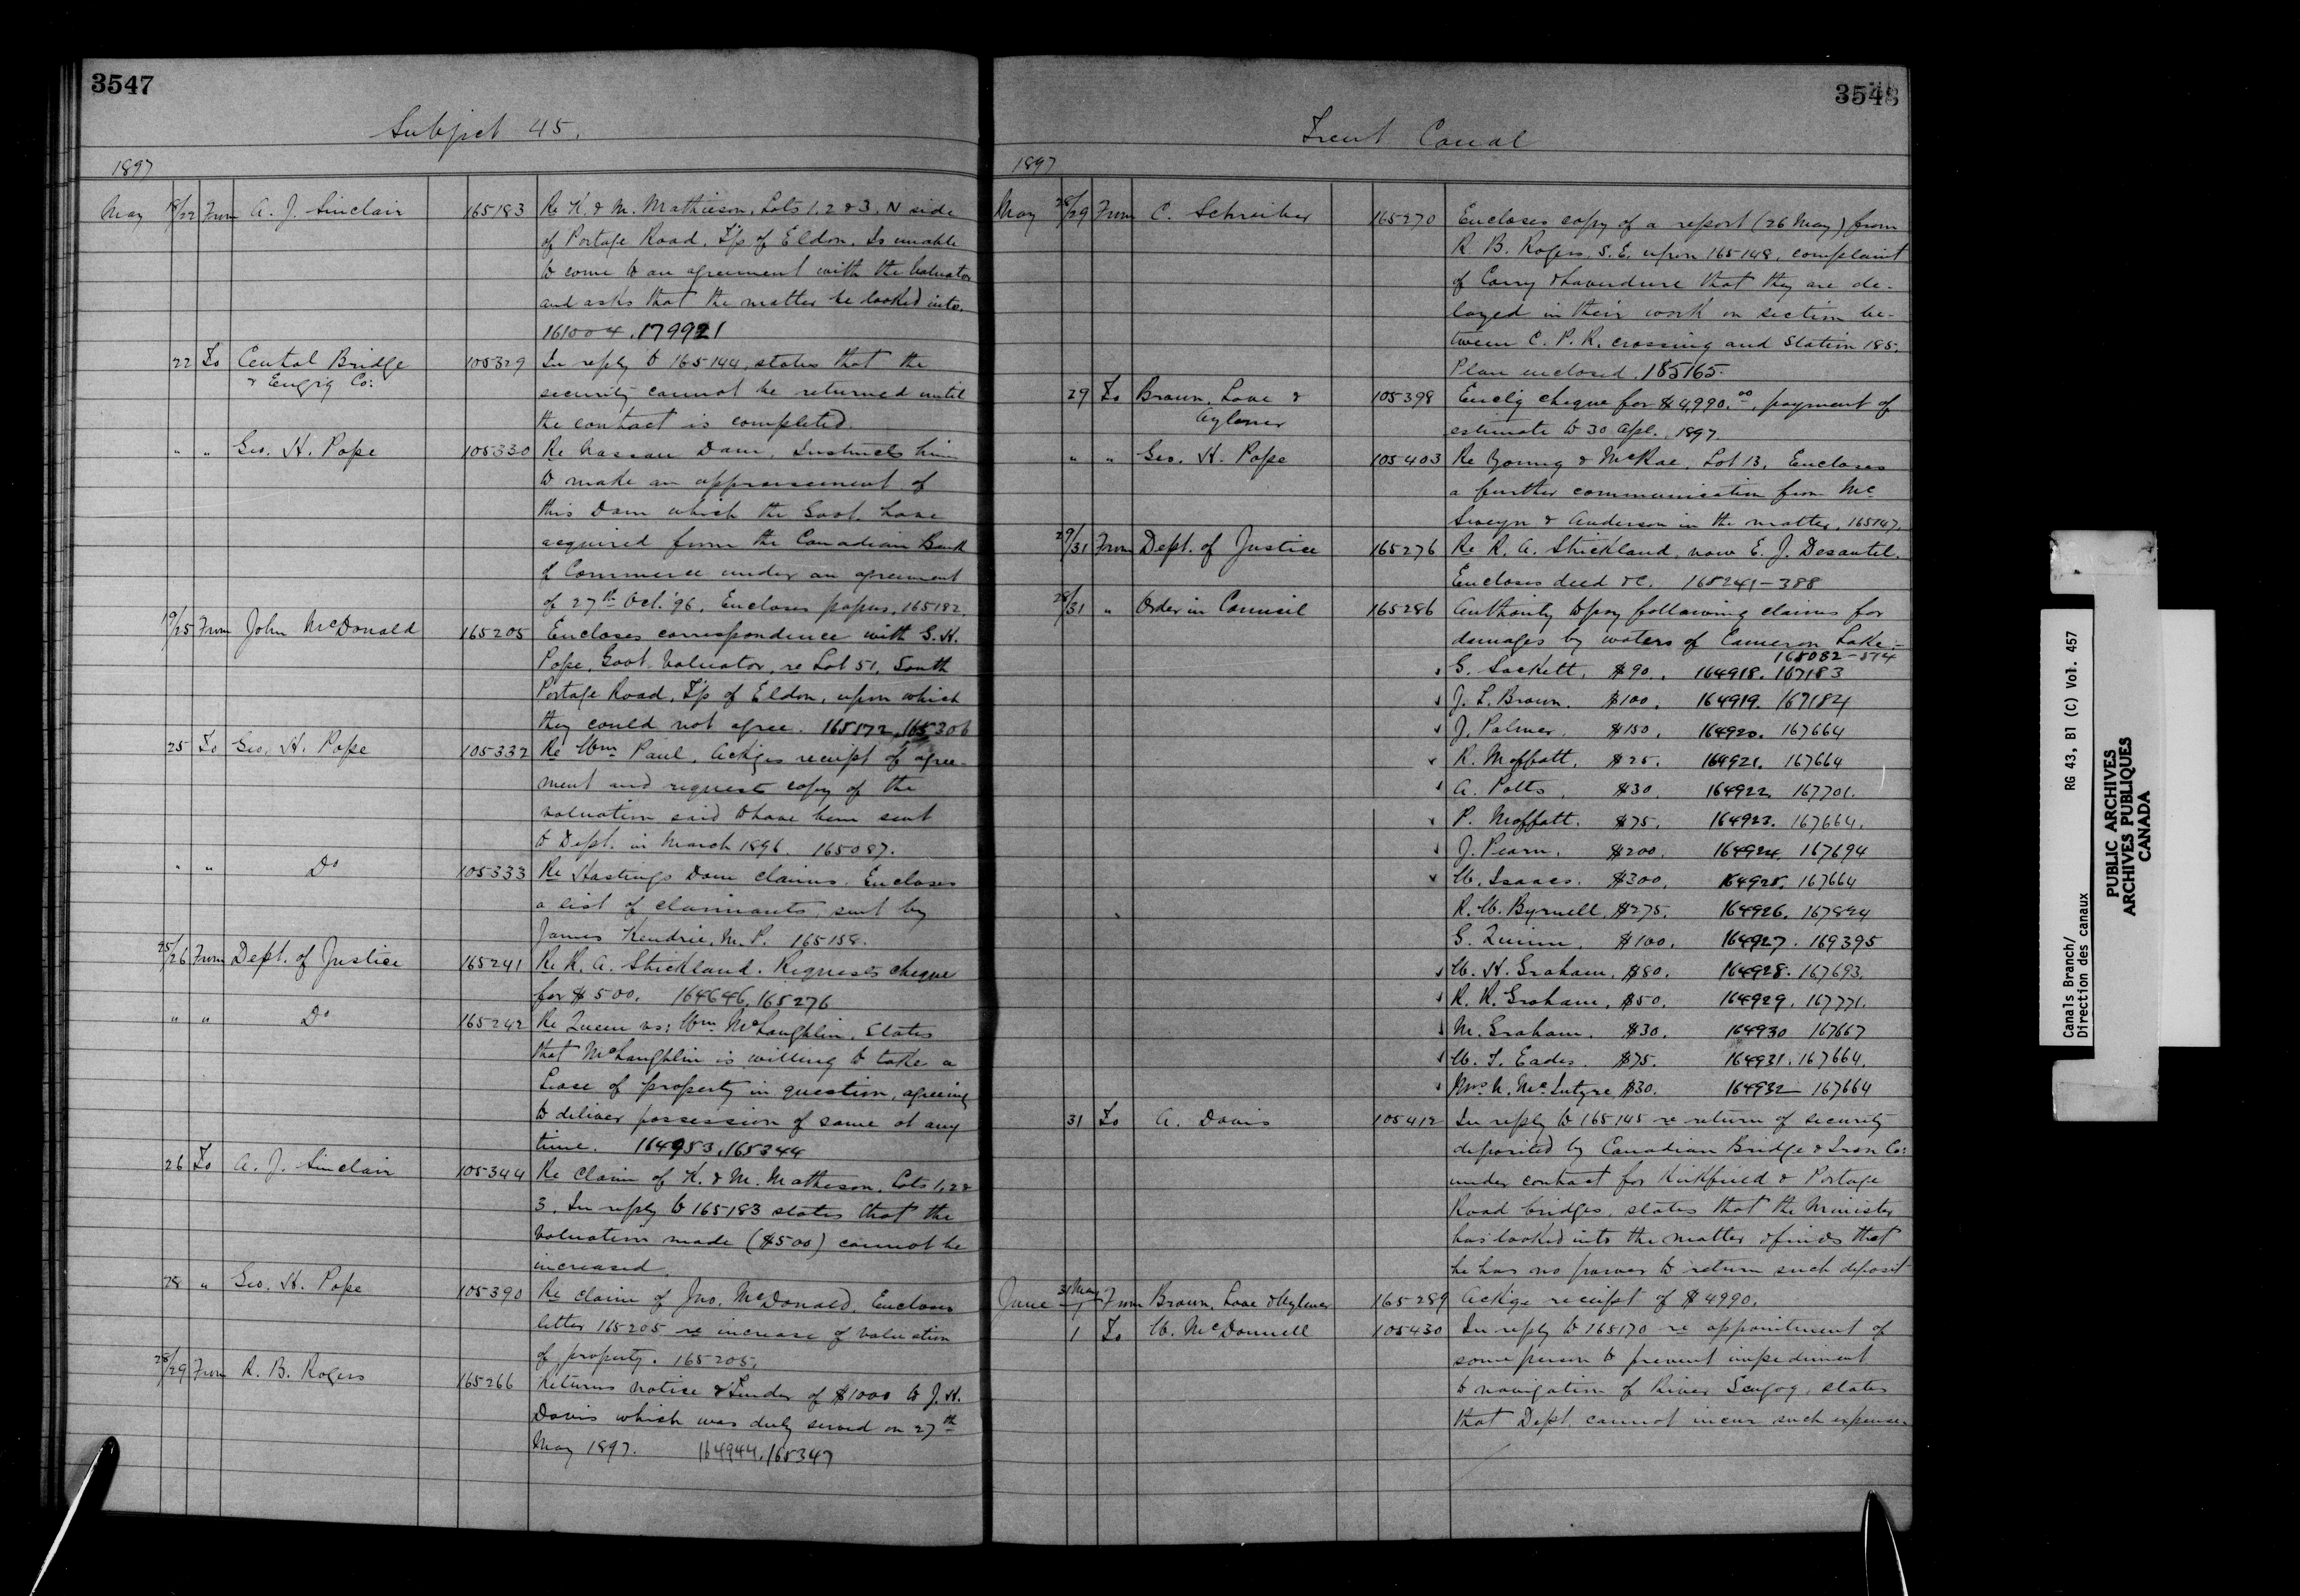 3547
Subject 45.
1897
May 18/22 From A. J. Sinclair 165183 Re K. & M. Mathieson, Lots 1, 2 & 3, N side
of Portage Road, T'p of Eldon. Is unable
to come to an agreement with the Valuator
and asks that the matter be looked into.
161004. 179921
22 To Central Bridge 105329 In reply to 165144, states that the
& Engig Co: security cannot be returned until
the contract is completed.
" " Geo. H. Pope 105330 Re Nassau Dam. Instructs him
to make an appraisement of
this Dam which the Govt. have
acquired from the Canadian Bank
of Commerce under an agreement
of 27th Oct. '96. Encloses papers, 165182.
19/25 From John McDonald 165205 Encloses correspondence with G. H.
Pope, Govt. Valuator, re Lot 51, South
Portage Road, T'p of Eldon, upon which
they could not agree. 165172, 165306
25 To Geo. H. Pope 105332 Re Wm Paul, Ackges receipt of agree-
ment and requests copy of the
valuation said to have been sent
to Dept. in March 1896. 165087.
" " Do 105333 Re Hastings Dam claims. Encloses
a list of claimants, sent by
James Kendrie, M. P. 165158.
25/26 From Dept. of Justice 165241 Re R. A. Strickland. Requests cheque
for $500. 164646, 165276
" " Do 165242 Re Queen vs: Wm McLaughlin. States
that McLaughlin is willing to take a
Lease of property in question, agreeing
to deliver possession of same at any
time. 164953, 165344
26 To A. J. Sinclair 105344 Re Claim of K. & M. Matheson, Lots 1, 2 &
3. In reply to 165183 states that the
Valuation made ($500) cannot be
increased.
28 " Geo. H. Pope 105390 Re claim of Jno. McDonald. Encloses
letter 165205 re increase of valuation
of property. 165205.
28/29 From R. B. Rogers 165266 Returns notice & Tender of $1000 to J. H.
Davis which was duly served on 27th
May 1897. 164944, 165347
3548
Trent Canal
1897
May 28/29 From C. Schreiber 165270 Encloses copy of a report (26 May) from
R. B. Rogers, S. E. upon 165148, complaint
of Corry & Laverdure that they are de-
layed in their work on section be-
tween C. P. R. crossing and Station 185.
Plan enclosed. 185165.
29 To Brown, Love & 105398 Enclg cheque for $4,990.00, payment of
Aylmer estimate to 30 Apl. 1897.
" " Geo. H. Pope 105403 Re Young & McRae, Lot 13, Encloses
a further communication from Mc
Sweyn & Anderson in the matter, 165147.
29/31 From Dept. of Justice 165276 Re R. A. Strickland, now E. J. Desautel.
Encloses deed &c. 165241-388
28/31 " Order in Council 165286 Authority to pay following claims for
damages by waters of Cameron Lake:-
165082-374
G. Sackett, $90. 164918. 167183
J. L. Brown. $100. 164919. 167184
J. Palmer. $150. 164920. 167664
R. Moffatt. $25. 164921. 167664
A. Potts. $30. 164922. 167701.
P. Moffatt. $75. 164923. 167664.
J. Pearn. $200. 164924. 167694
W. Isaacs. $300. 164925. 167664
R. W. Byrnell, $275. 164926. 167824
G. Quinn. $100. 164927. 169395
W. H. Graham, $80. 164928. 167693.
R. R. Graham, $50. 164929. 167771.
M. Graham. $30. 164930 167667
W. T. Eades. $75. 164931. 167664.
Mrs N. McIntyre $30. 164932 - 167664
31 To A. Davis 105412 In reply to 165145 re return of security
deposited by Canadian Bridge & Iron Co:
under contract for Kirkfield & Portage
Road bridges, states that the Minister
has looked into the matter & finds that
he has no power to return such deposit
June 31 May/1 From Brown, Love & Aylmer 165289 Ackge receipt of $4990.
1 To W. McDonnell 105430 In reply to 165170 re appointment of
some person to prevent impediment
to navigation of River Scugog, states
that Dept. cannot incur such expense.
Canals Branch/
Direction des canaux
RG 43, B1 (C) Vol. 457
PUBLIC ARCHIVES
ARCHIVES PUBLIQUES
CANADA